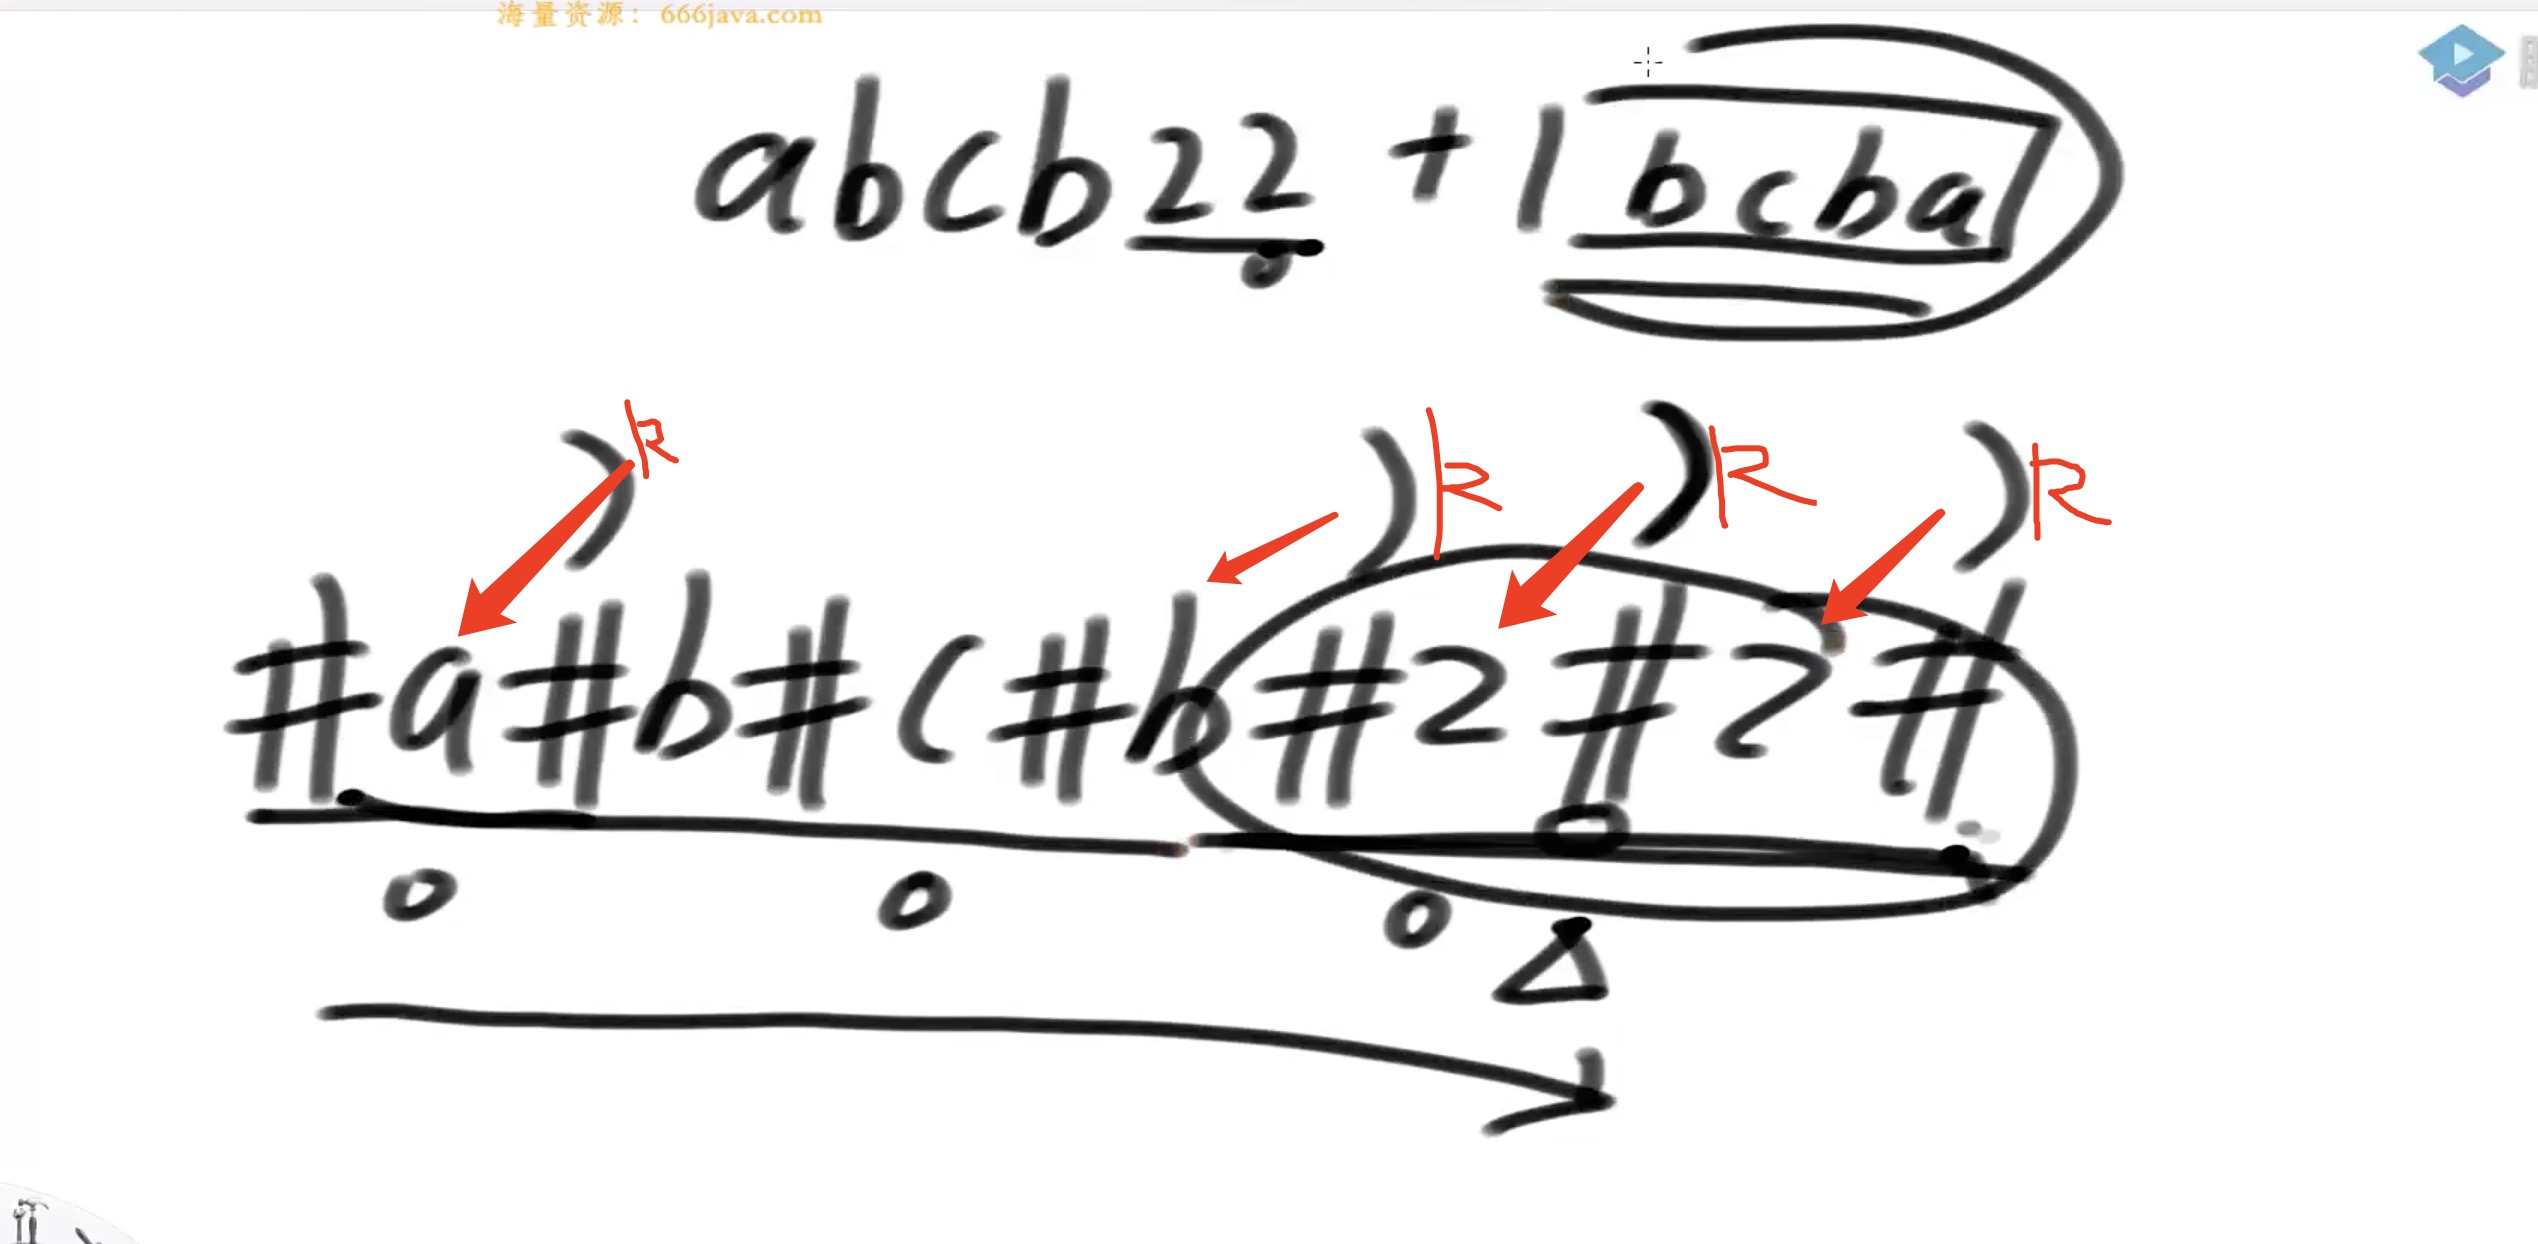 海量资源：666java.com
abcb22 + | bcba
R R R R
#a#b#c#b#2#2#